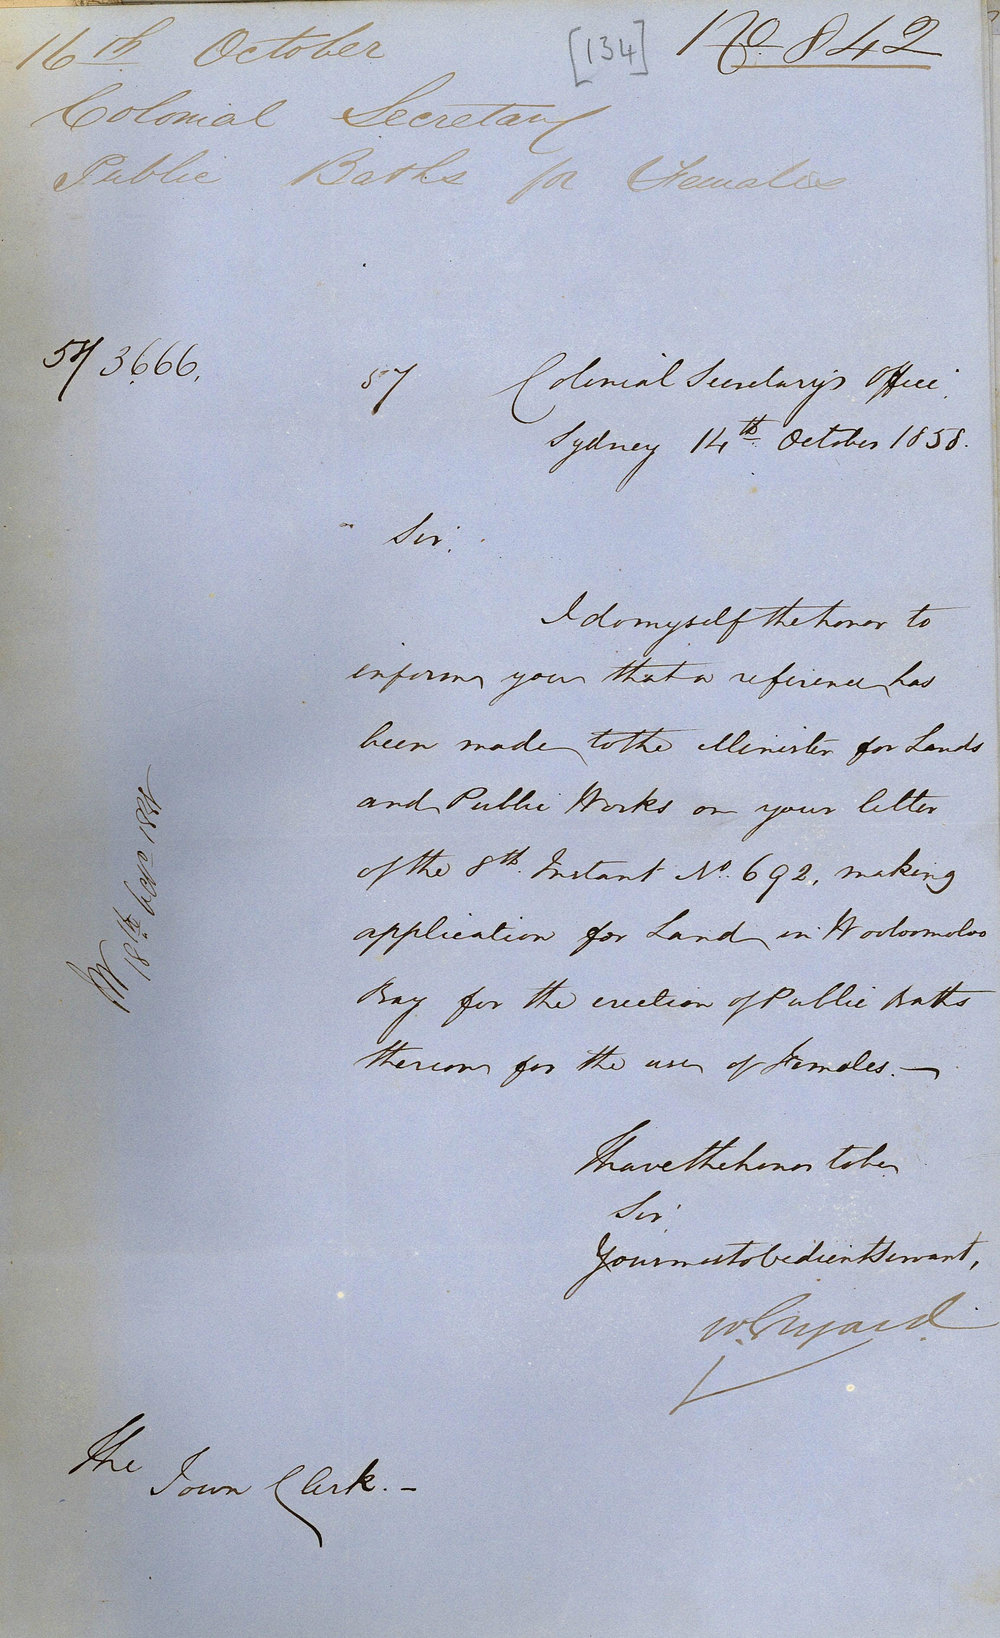 16th October [134] No. 842
Colonial Secretary
Public Baths for Females
58/3666. 57 Colonial Secretary's Office.
Sydney 14th October 1858.
Sir,
I do myself the honor to
inform you that a reference has
been made to the Minister for Lands
and Public Works on your letter
of the 8th Instant No. 692, making
application for Land in Wooloomoloo
Bay for the erection of Public Baths
thereon for the use of Females. —
I have the honor to be
Sir
Your most obedient Servant,
W. Elyard.
The Town Clerk. –
18th Octr 1858